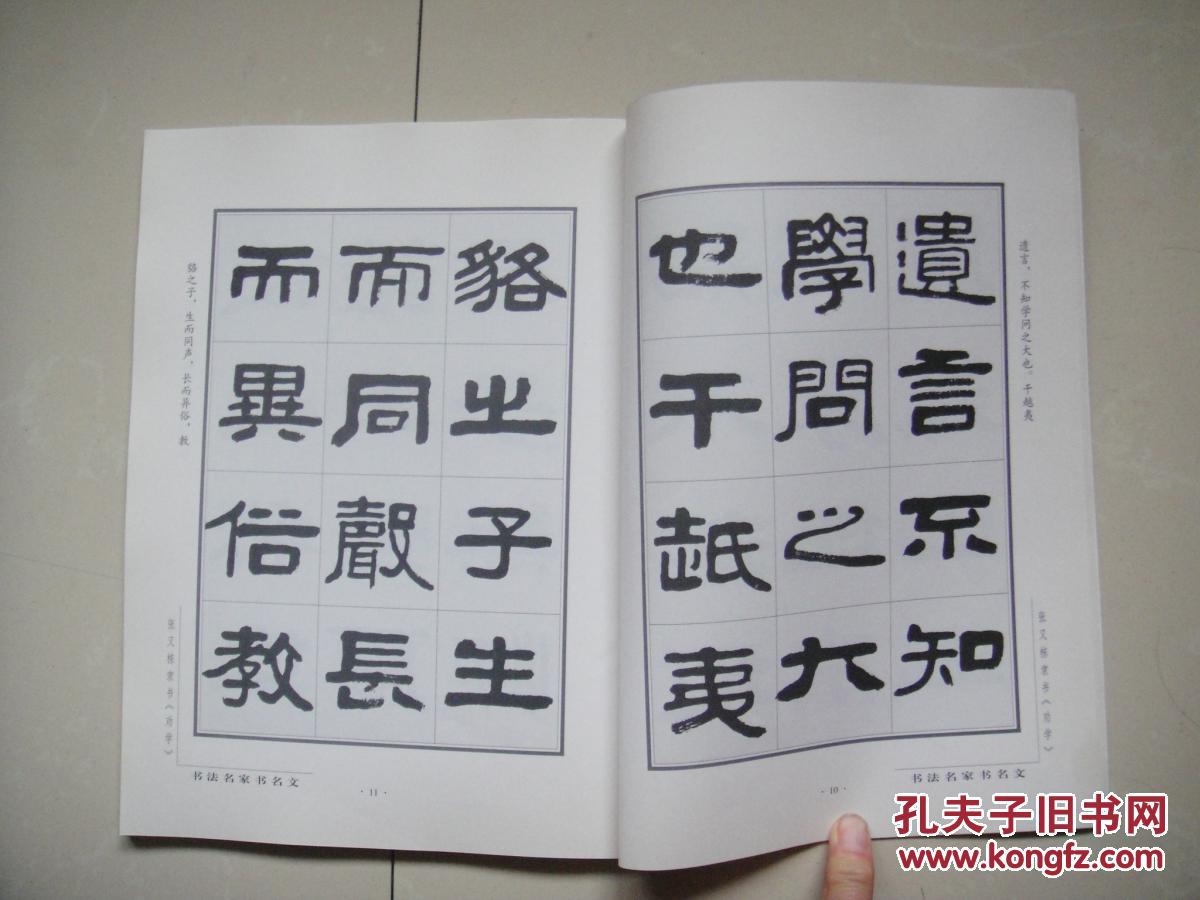 遺言不知
學問之大
也干越夷
遗言，不知学问之大也。干越夷
张又栋隶书《劝学》
书法名家书名文
·10·
貉之子生
而同聲長
而異俗教
貉之子，生而同声，长而异俗，教
张又栋隶书《劝学》
书法名家书名文
·11·
孔夫子旧书网
www.kongfz.com